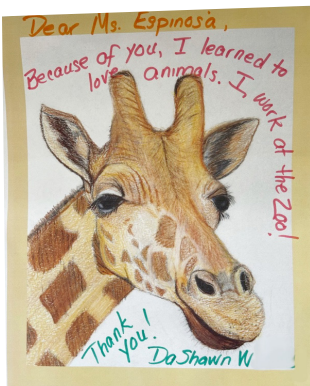 Dear Ms. Espinosa,
Because of you, I learned to
love animals. I, work at the Zoo!
Thank
you!
DaShawn W